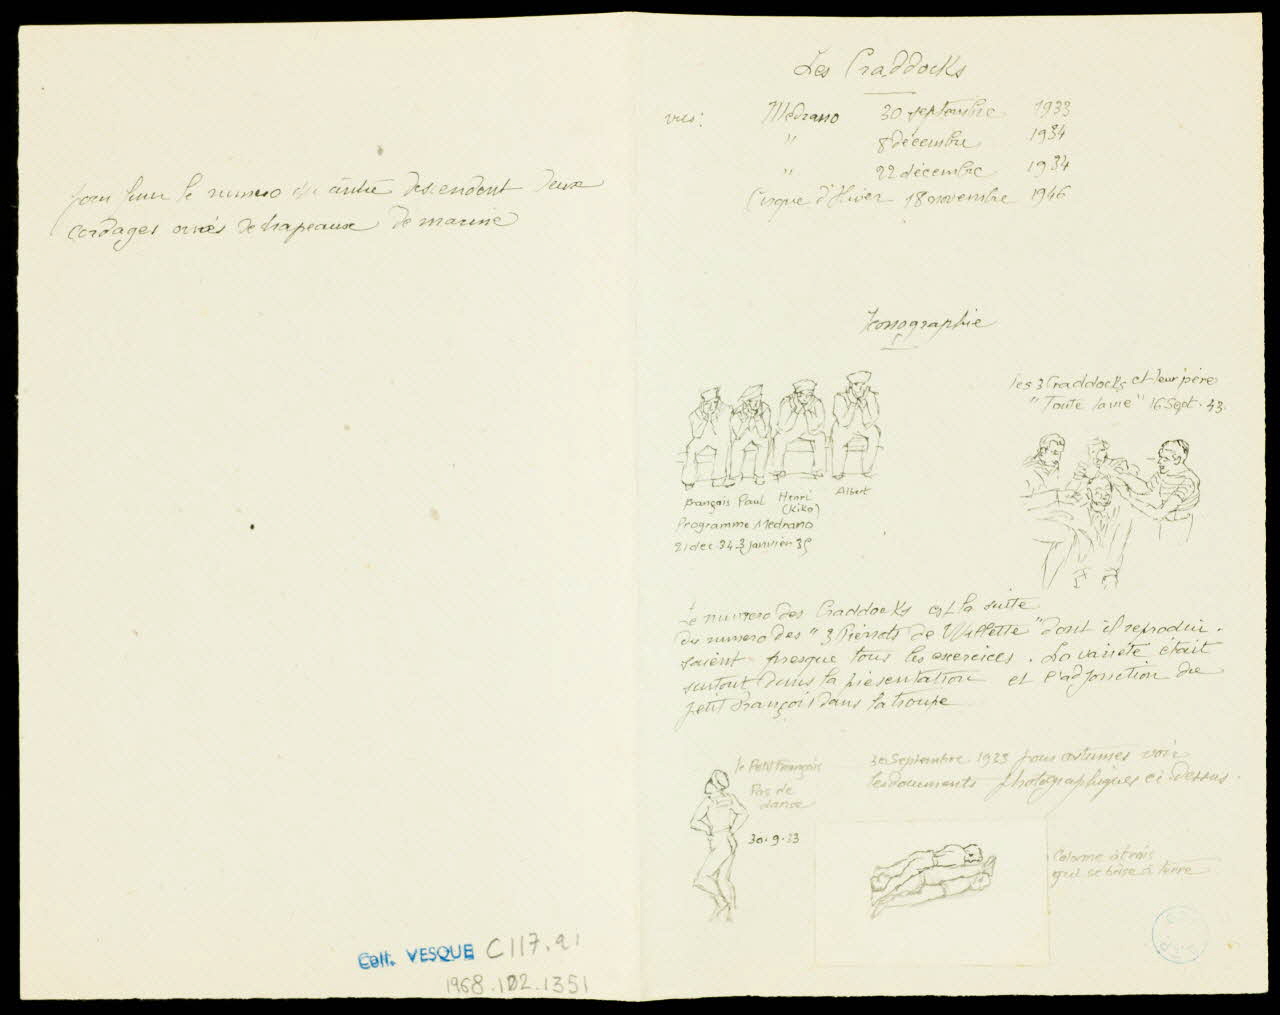 pour leur le numero du cintre descendent deux
cordages ornés de drapeaux de marine
Coll. VESQUE C117.21
1968.102.1351
Les Craddocks
vus: Médrano 30 septembre 1933
" 8 décembre 1934
" 22 décembre 1934
Cirque d'Hiver 18 novembre 1946
Iconographie
les 3 Craddocks et leur père
"Toute la vie" 16 Sept. 43.
François Paul Henri Albert
(Kiko)
Programme Medrano
21 dec. 34-3 janvier 35
Le numero des Craddocks est la suite
du numero des "3 Pierrots de Willette" dont il reprodui-
saient presque tous les exercices. La variété était
surtout dans la présentation et l'adjonction du
petit François dans la troupe
le Petit François
Pas de
danse
30.9.33
30 Septembre 1933 pour costumes voir
les documents photographiques ci-dessus.
Colonne à trois
qui se brise à terre